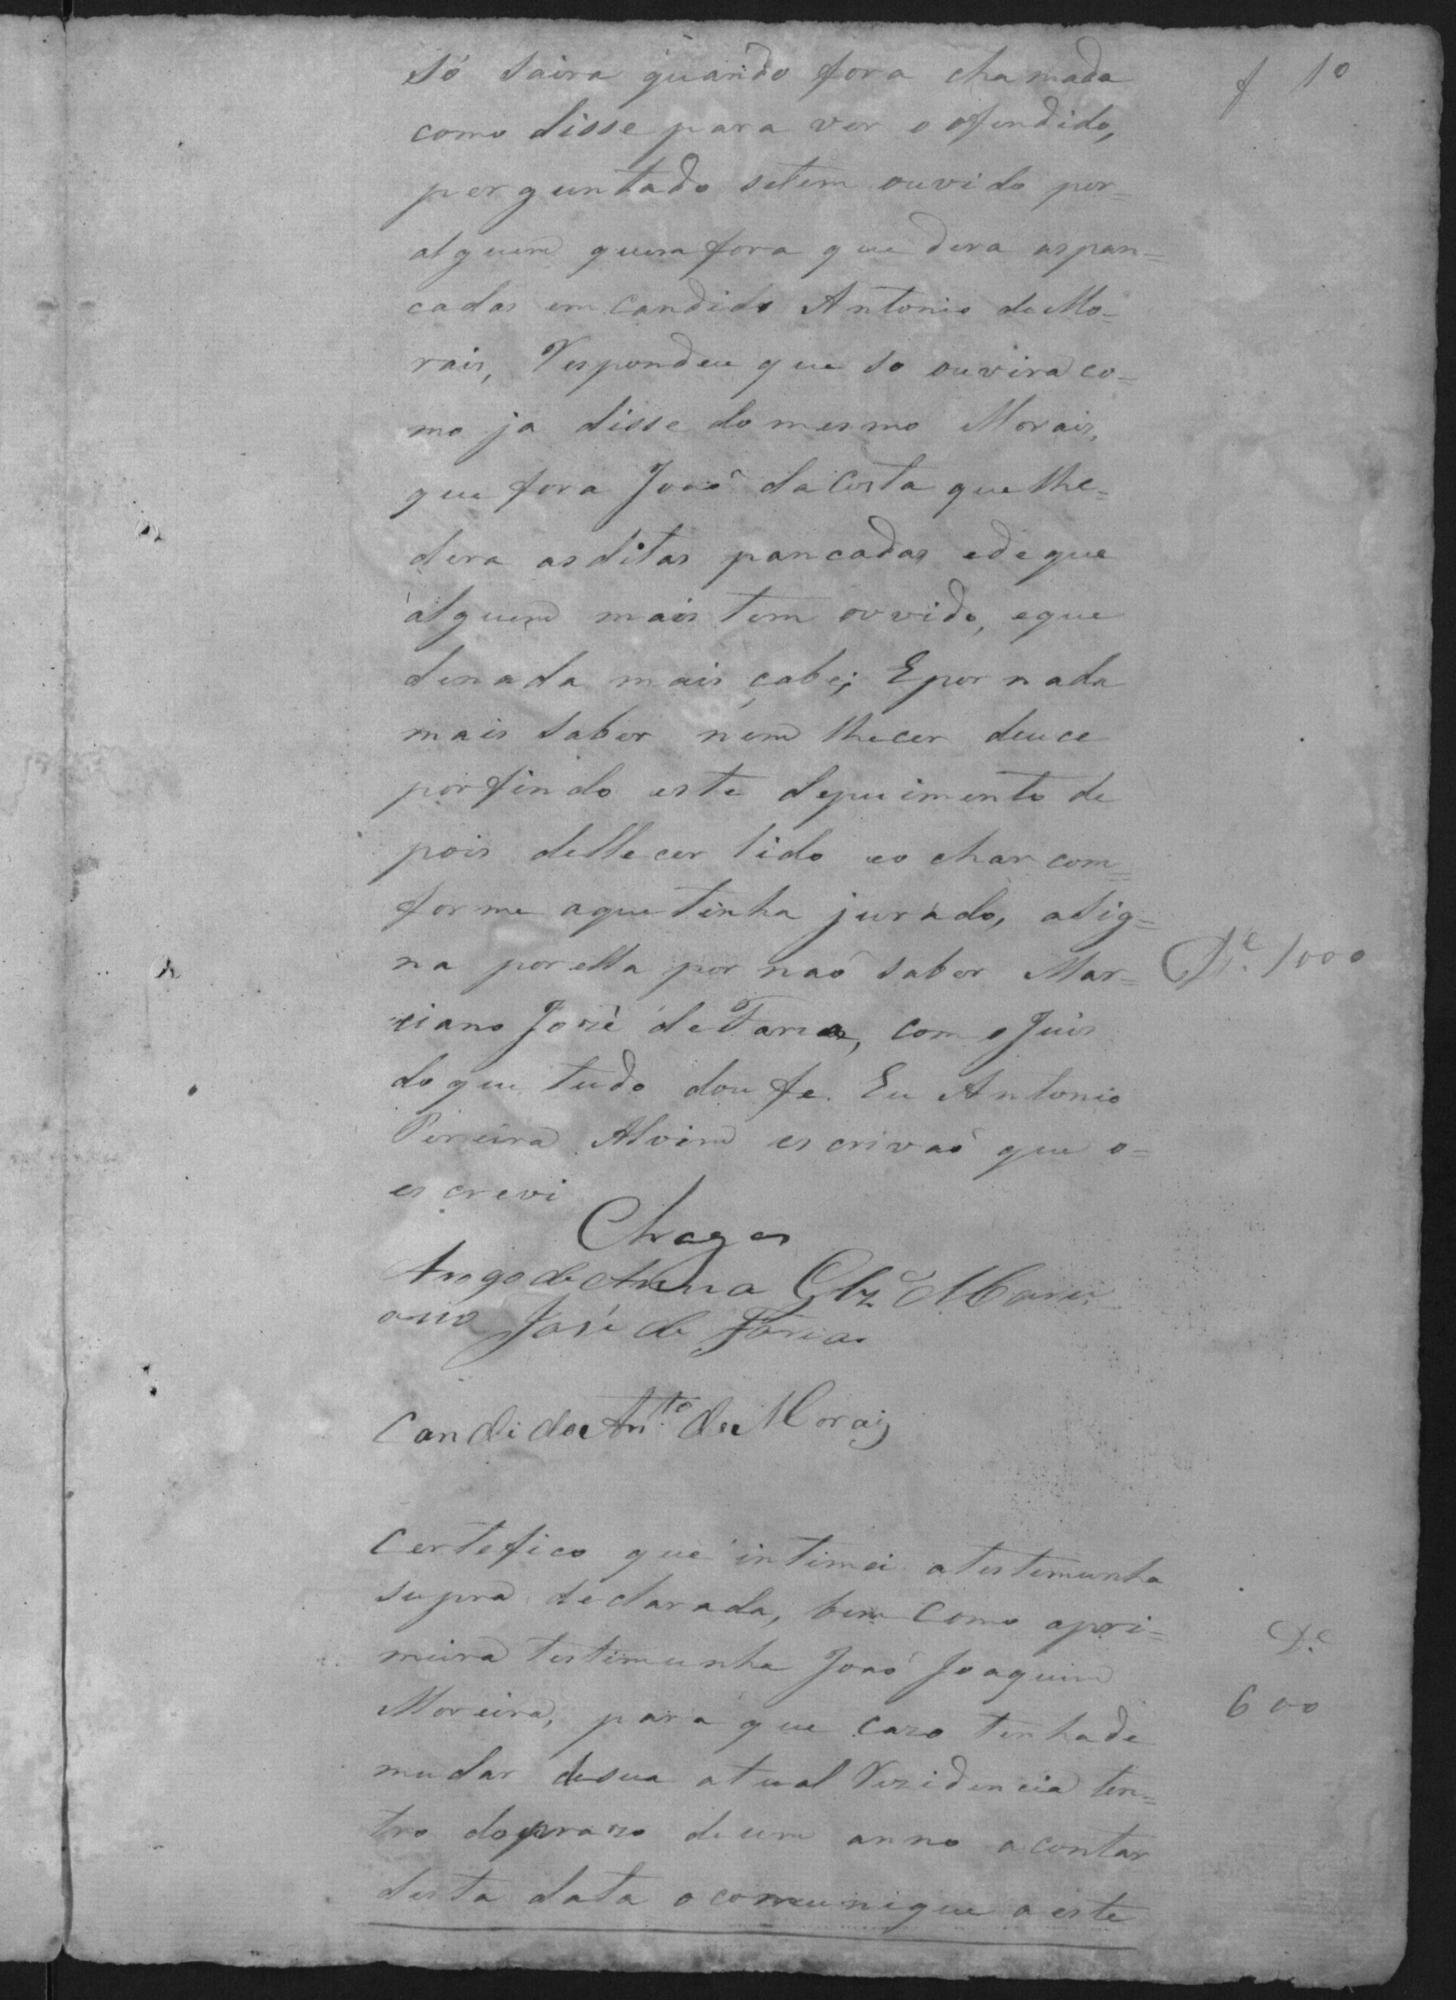 f 10
só saira quando fora chamada
como disse para ver o ofendido,
perguntado setem ouvido por-
alguem quem fora que dera aspan=
cadas em Candido Antonio deMo-
rais, Respondeu que so ouvira co-
mo ja disse do mesmo Morais,
que fora Joaõ daCosta que lhe-
dera asditas pancadas edeque
alguem mais tem ouvido, eque
denada mais çabe; Epor nada
mais saber nem lhecer deuce
porfindo este depuimento de
pois dellecer lido eo char com=
forme aque tinha jurado, asig=
na porella por naõ saber Mar=
De. 1000
ciano José de Faria, com o Juis
doque tudo dou fe. Eu Antonio
Pereira Alvim escrivaõ que o-
escrevi
Chagas
Arogo de Anna Glz Marci
ano José de Farias
Candido Anto de Morais
Certefico que intimei atestemunha
supra declarada, bem como apri=
meira testimunha Joaõ Joaquim
De.
Moreira, para que cazo tenhade
600
mudar desua atual Rezidencia den=
tro doprazo deum anno acontar
desta data ocomunique a este